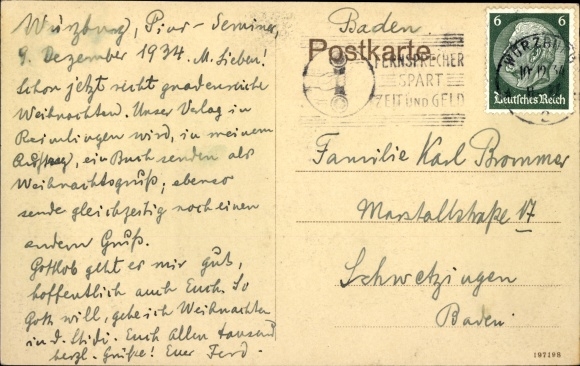 Würzburg, Pius-Seminar,
9. Dezember 1934. M. Lieben!
Schon jetzt recht gnadenreiche
Weihnachten. Unser Verlag in
Reimlingen wird, in meinem
Auftrag, ein Buch senden als
Weihnachtsgruß; ebenso
sende gleichzeitig noch einen
andern Gruß.
Gottlob geht es mir gut,
hoffentlich auch Euch. So
Gott will, gehe ich Weihnachten
in d. Euch Allen tausend
herzl. Grüße! Euer Ferd.
Baden
Postkarte
FERNSPRECHER
SPART
ZEIT UND GELD
WÜRZBURG
2
6 6
Deutsches Reich
Familie Karl Brommer
Marstallstraße 17
Schwetzingen
Baden
197198